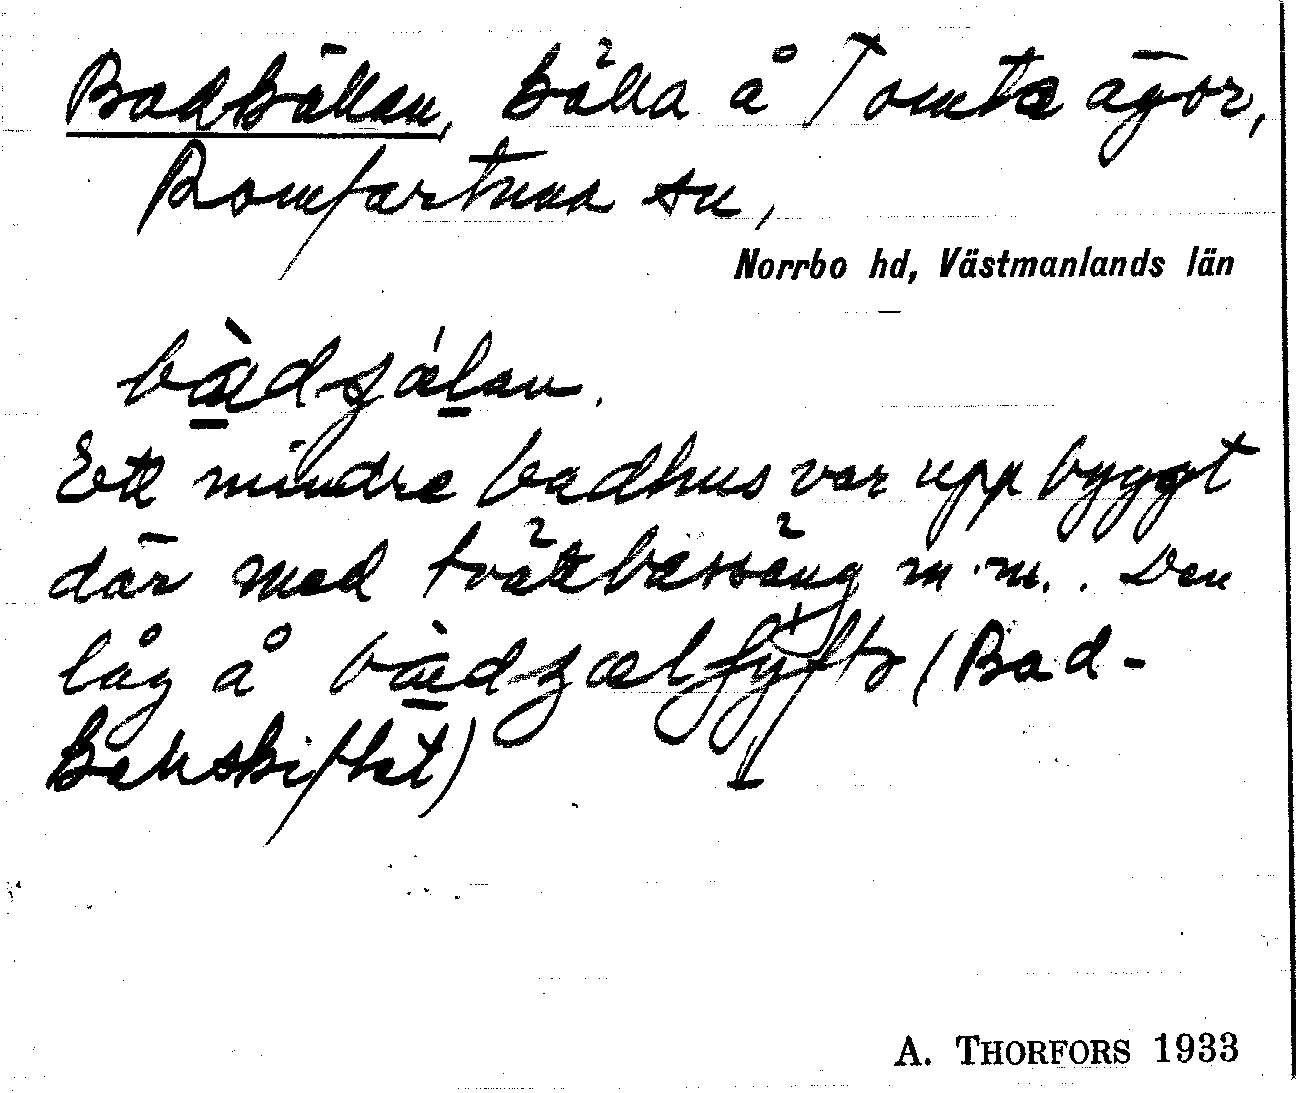 Badkällan, källa å Tomta ägor,
Romfartuna sn,
Norrbo hd, Västmanlands län
Ett mindre badhus var uppbyggt
där med tvättbassäng m.m.. Den
låg å (Bad-
källskiftet)
A. THORFORS 1933